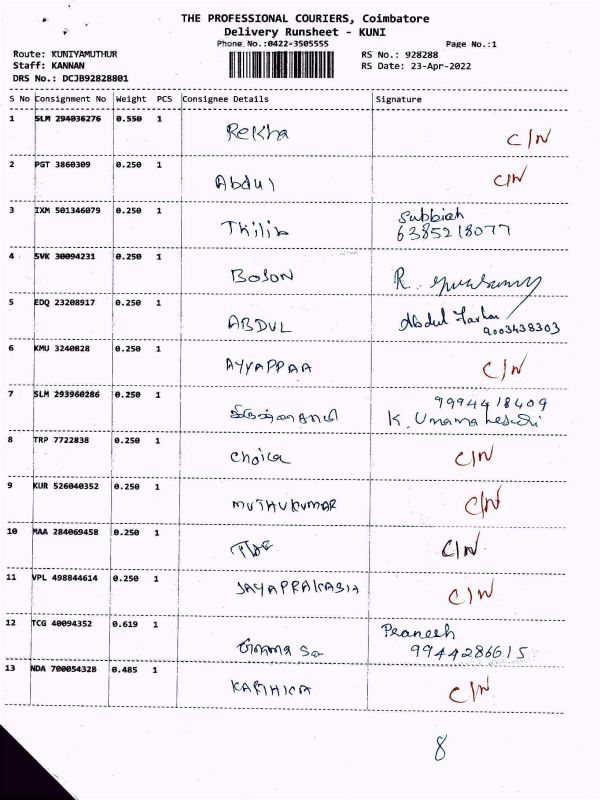 THE PROFESSIONAL COURIERS, Coimbatore
Delivery Runsheet - KUNI
Phone No.:0422-3505555
Page No.:1
Route: KUNIYAMUTHUR
RS No.: 928288
Staff: KANNAN
RS Date: 23-Apr-2022
DRS No.: DCJB92828801
S No Consignment No Weight PCS Consignee Details Signature
1 SLM 294036276 0.550 1 Rekha C/N
2 PGT 3860309 0.250 1 Abdul C/N
3 IXM 501346079 0.250 1 Thilib Subbiah
6385218077
4 SVK 30094231 0.250 1 BOSON R.
5 EDQ 23208917 0.250 1 ABDUL Abdul
9003438303
6 KMU 3240828 0.250 1 AYYAPPAA C/N
7 SLM 293960286 0.250 1 9994418409
K. Umamaheswari
8 TRP 7722838 0.250 1 choice C/N
9 KUR 526040352 0.250 1 MUTHUKUMAR C/N
10 MAA 284069458 0.250 1 C/N
11 VPL 498844614 0.250 1 JAYAPRAKASH C/N
12 TCG 40094352 0.619 1 Praneesh
9944286615
13 NDA 700054328 0.485 1 KARTHICK C/N
8